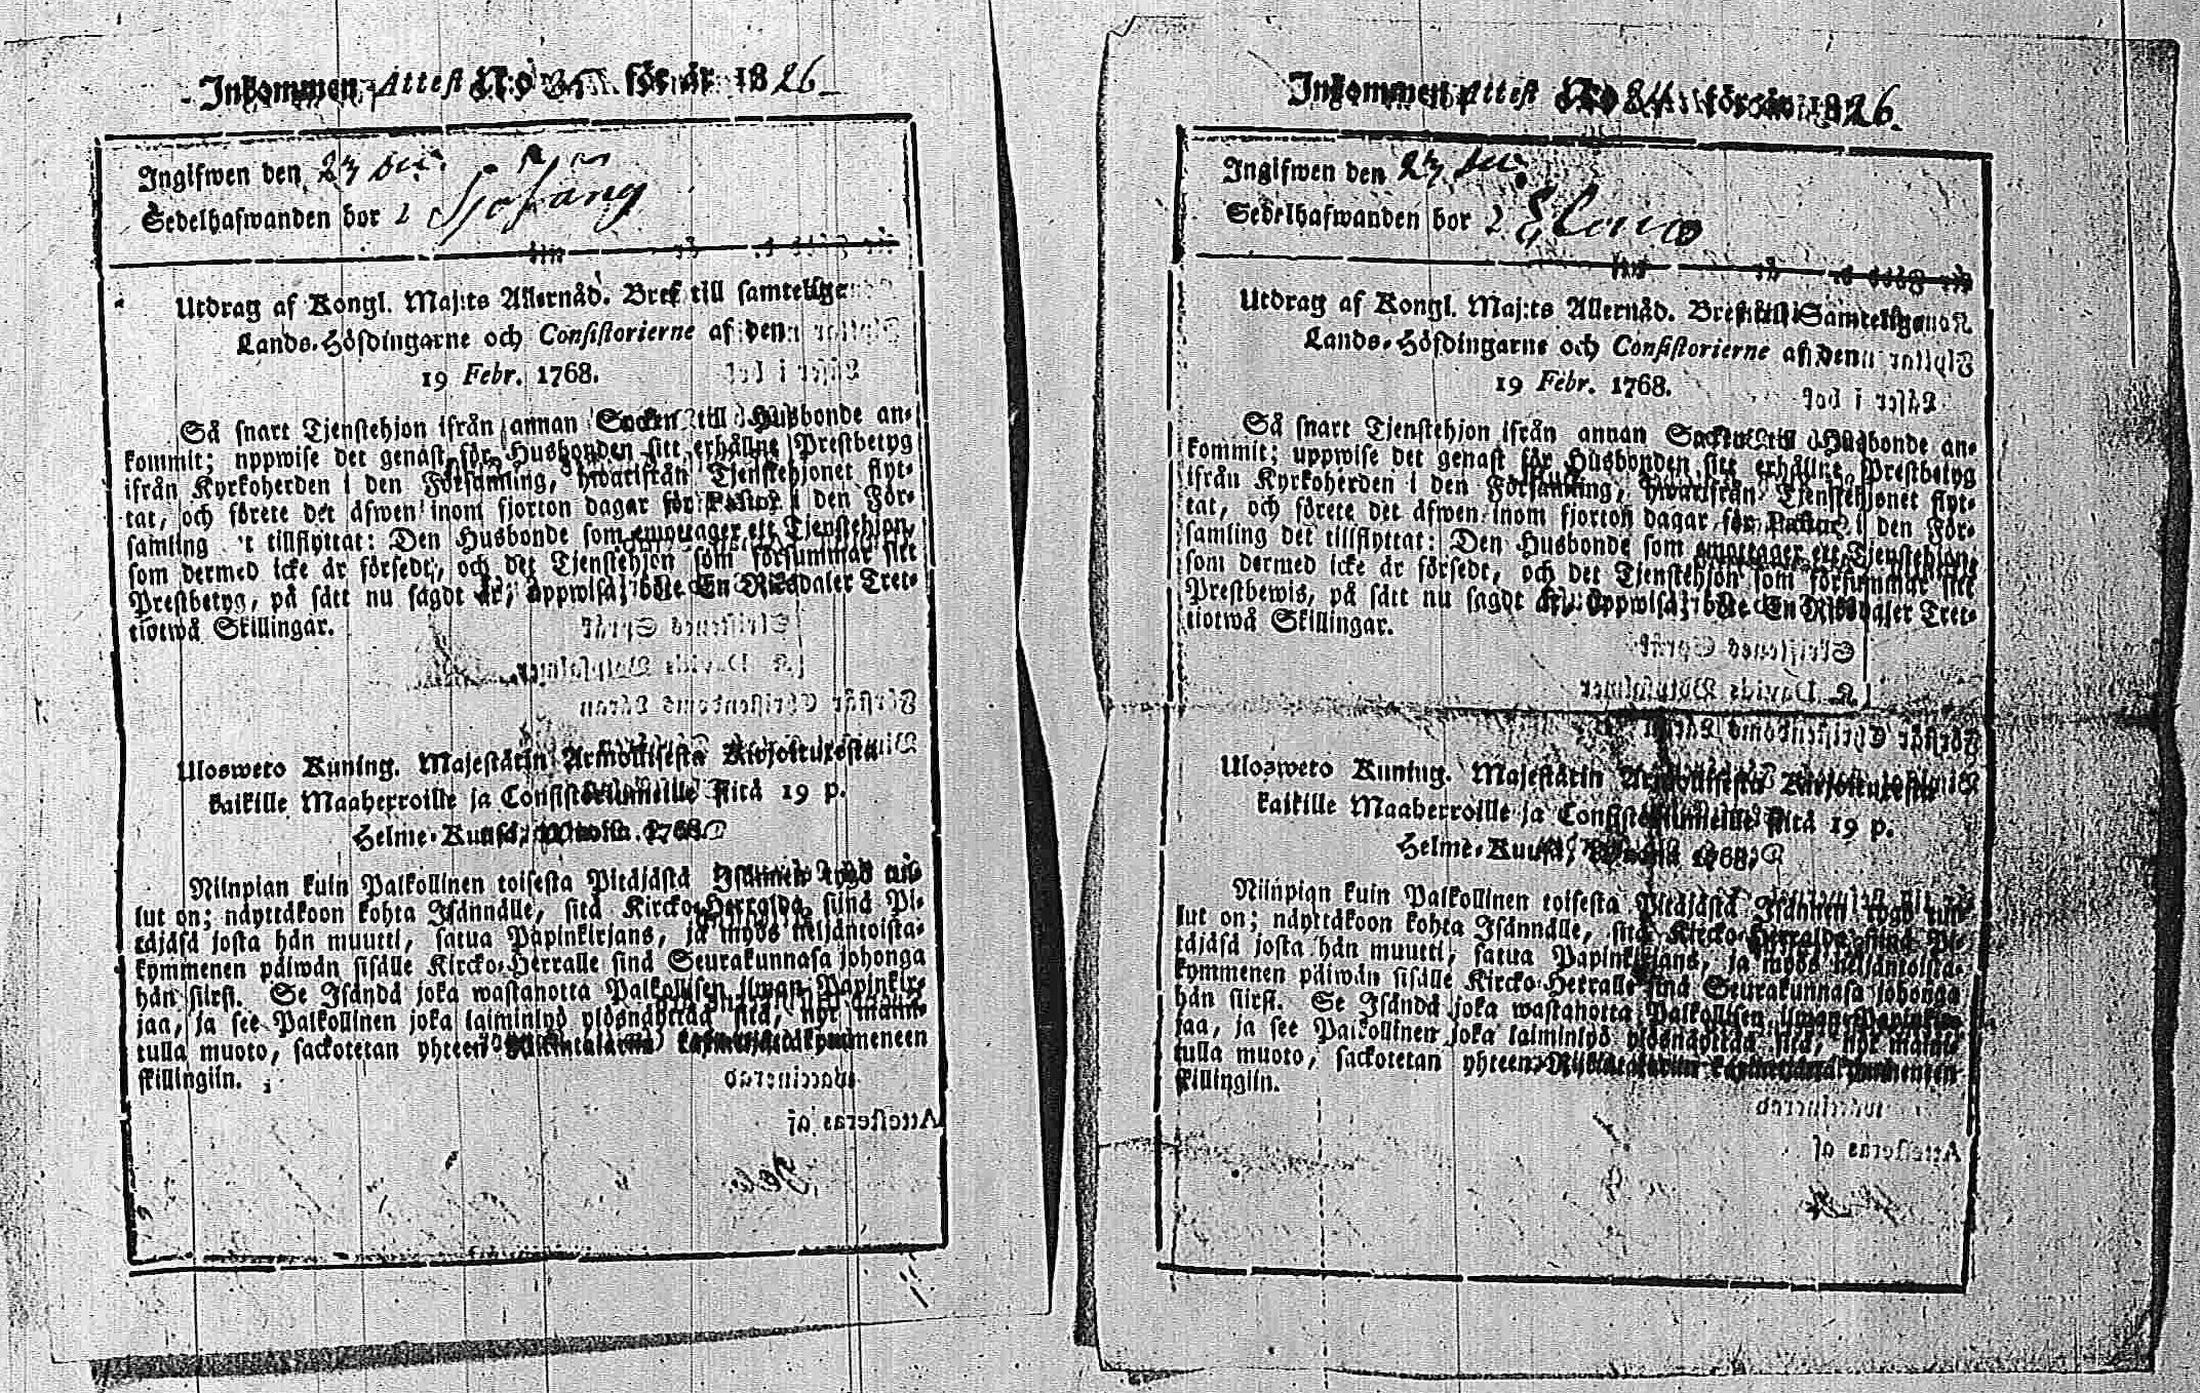 Inkommen Attest N:o för år 1826
Ingifwen den 23 dec.
Sedelhafwanden bor i
Utdrag af Kongl. Maj:ts Allernåd. Bref till samtellge
Lands-Höfdingarne och Consistorierne af den
19 Febr. 1768.
Så snart Tjenstehjon ifrån annan Socken till Husbonde an-
kommit; uppwise det genast för Husbonden sitt erhållne Prestbetyg
ifrån Kyrkoherden i den Församling, hwarifrån Tjenstehjonet flyt-
tat, och förete det äfwen inom fjorton dagar för Pastor i den För-
samling tillflyttat: Den Husbonde som emottager ett Tjenstehjon,
som dermed icke är försedt, och det Tjenstehjon som försummar sitt
Prestbetyg, på sätt nu sagdt är, uppwisa; böte En Riksdaler Tret-
tiotwå Skillingar.
Ulosweto Kuning. Majestätin Armollisesta Kirjoituxesta
kaikille Maaherroille ja Consistoriumeille sitä 19 p.
Helme-Kuusa, Wuosta 1768.
Niinpian kuin Palkollinen toisesta Pitäjästä Isännen tygö tul-
lut on; näyttäkoon kohta Isännälle, sitä Kircko-Herralda siinä Pi-
täjäsä josta hän muutti, saatua Papinkirjans, ja myös neljäntoista-
kymmenen päiwän sisälle Kircko-Herralle siinä Seurakunnasa johonga
hän siirsi. Se Isändä joka wastanotta Palkollisen ilman Papinkir-
jaa, ja see Palkollinen joka laiminlyö ylösnäyttää sitä, nyt mainit-
tulla muoto, sackotetan yhteen Riikintaleriin kahteneljättäkymmeneen
skillingiin.
Inkommen Attest N:o 24 för år 1826.
Ingifwen den 23 dec.
Sedelhafwanden bor i
Utdrag af Kongl. Maj:ts Allernåd. Bref till Samtellge
Lands-Höfdingarne och Consistorierne af den
19 Febr. 1768.
Så snart Tjenstehjon ifrån annan Socken till Husbonde an-
kommit; uppwise det genast för Husbonden sitt erhållne Prestbetyg
ifrån Kyrkoherden i den Församling, hwarifrån Tjenstehjonet flyt-
tat, och förete det äfwen inom fjorton dagar för Pastor i den För-
samling det tillflyttat: Den Husbonde som emottager ett Tjenstehjon,
som dermed icke är försedt, och det Tjenstehjon som försummar sitt
Prestbewis, på sätt nu sagdt är, uppwisa; böte En Riksdaler Tret-
tiotwå Skillingar.
Ulosweto Kuning. Majestätin Armollisesta Kirjoituxesta
kaikille Maaherroille ja Consistoriumeille sitä 19 p.
Helme-Kuusa, Wuosta 1768.
Niinpian kuin Palkollinen toisesta Pitäjästä Isännen tygö tul-
lut on; näyttäkoon kohta Isännälle, sitä Kircko-Herralda siinä Pi-
täjäsä josta hän muutti, saatua Papinkirjans, ja myös neljäntoista-
kymmenen päiwän sisälle Kircko-Herralle siinä Seurakunnasa johonga
hän siirsi. Se Isändä joka wastanotta Palkollisen ilman Papinkir-
jaa, ja see Palkollinen joka laiminlyö ylösnäyttää sitä, nyt mainit-
tulla muoto, sackotetan yhteen Riikintaleriin kahteneljättäkymmeneen
skillingiin.